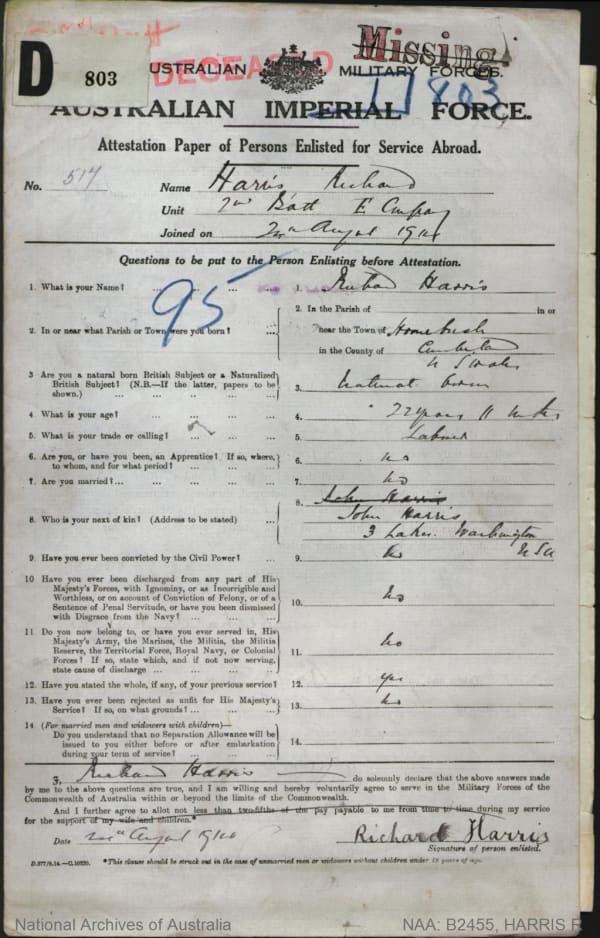 Missing
DECEASED
D 803
AUSTRALIAN MILITARY FORCES.
803
AUSTRALIAN IMPERIAL FORCE.
Attestation Paper of Persons Enlisted for Service Abroad.
No. 517 Name Harris Richard
Unit Batt E Company
Joined on August 1914
Questions to be put to the Person Enlisting before Attestation.
95
1. What is your Name? ... ... ... 1. Richard Harris
2. In or near what Parish or Town were you born? ... 2. In the Parish of in or
near the Town of Homebush
in the County of Cumberland
N S Wales
3 Are you a natural born British Subject or a Naturalized
British Subject? (N.B.—If the latter, papers to be
shown.) ... ... ... ... 3. Natural born
4. What is your age? ... ... ... 4. 22 years 11 mths
5. What is your trade or calling? ... ... 5. Labourer
6. Are you, or have you been, an Apprentice? If so, where,
to whom, and for what period? ... ... 6. no
7. Are you married? ... ... ... ... 7. no
8. Who is your next of kin? (Address to be stated) ... 8. John Harris
John Harris
3 Lakes Washington
USA
9. Have you ever been convicted by the Civil Power? ... 9. No
10 Have you ever been discharged from any part of His
Majesty's Forces, with Ignominy, or as Incorrigible and
Worthless, or on account of Conviction of Felony, or of a
Sentence of Penal Servitude, or have you been dismissed
with Disgrace from the Navy? ... ... 10. no
11. Do you now belong to, or have you ever served in, His
Majesty's Army, the Marines, the Militia, the Militia
Reserve, the Territorial Force, Royal Navy, or Colonial
Forces? If so, state which, and if not now serving,
state cause of discharge ... ... ... 11. no
12. Have you stated the whole, if any, of your previous service? 12. yes
13. Have you ever been rejected as unfit for His Majesty's
Service? If so, on what grounds? ... ... 13. no
14 (For married men and widowers with children)—
Do you understand that no Separation Allowance will be
issued to you either before or after embarkation
during your term of service? ... ... 14.
I, Richard Harris do solemnly declare that the above answers made
by me to the above questions are true, and I am willing and hereby voluntarily agree to serve in the Military Forces of the
Commonwealth of Australia within or beyond the limits of the Commonwealth.
And I further agree to allot not less than two-fifths of the pay payable to me from time to time during my service
for the support of my wife and children.*
Date August 1914 Richard Harris
Signature of person enlisted.
*This clause should be struck out in the case of unmarried men or widowers without children under 18 years of age.
National Archives of Australia NAA: B2455, HARRIS R